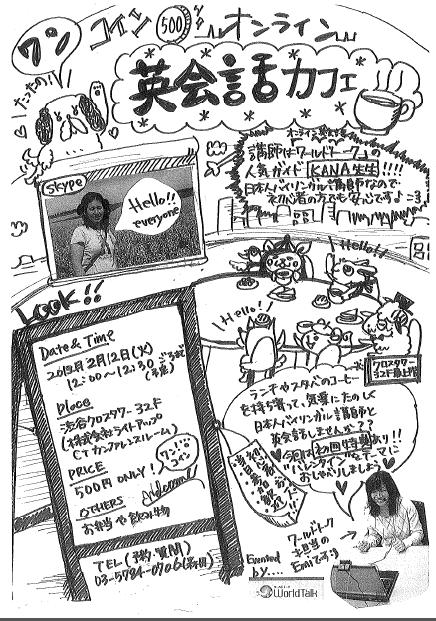 ワン
コイン
500
オンライン
英会話カフェ
たったの!
オンライン英会話
講師はワールドトークの
人気ガイド KANA先生!!!!
日本人バイリンガル講師なので
初心者の方でも安心です♪
skype
Hello!!
everyone
Look!!
Hello!!
Hello!
クロスタワー
32F最上階
Date & Time
12:00〜12:50
place
渋谷クロスタワー32F
(株式会社ライトアップ
CTカンファレンスルーム)
PRICE
500円 ONLY!
ワン!
コイン
OTHERS
お弁当や飲み物
Welcome!!
TEL(予約・質問)
ランチやスタバのコーヒー
を持ち寄って、気楽にたのしく
日本人バイリンガル講師と
英会話しませんか??
今回は初回特別あり!!
"バレンタイン"をテーマに
おしゃべりしましょう
ワールドトーク
担当の
Emiです
Evented
by....
WorldTalk